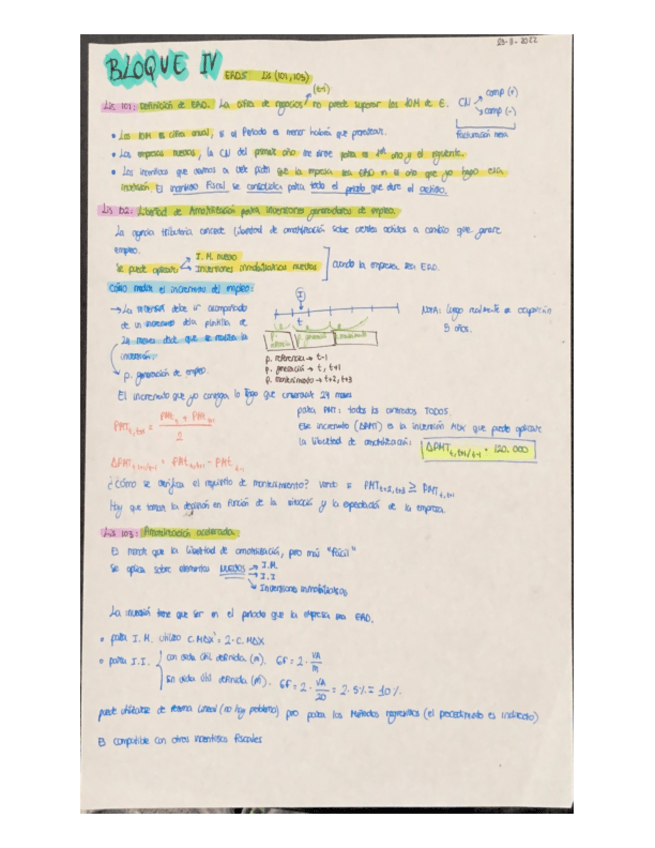 23-11-2022
BLOQUE IV ERD'S Lis (101, 103)
(t-1)
Lis 101: Definición de ERD. La cifra de negocios no puede superar los 10M de €. CN comp (+)
comp (-)
Facturación neta
• Los 10M es cifra anual, si el Periodo es menor habrá que
• Las empresas nuevas, la CN del primer año me sirve para el 1er año y el siguiente.
• Los incentivos que vamos a ver piden que la empresa sea ERD en el año que yo hago esa
inversión. El incentivo Fiscal se consolida para todo el que dure el activo.
Lis 102: Libertad de Amortización para inversiones generadoras de empleo.
La agencia tributaria concede libertad de amortización sobre ciertos activos a cambio que genere
empleo.
Se puede aplicar I.M. NUEVO
Inversiones inmobiliarias nuevas
cuando la empresa sea ERD.
Cómo medir el incremento del empleo:
→ La inversión debe ir acompañado
de un incremento de la plantilla de
24 meses desde que se realiza la
inversión.
→ p. generación de empleo.
I
t
p. referencia → t-1
p. generación → t, t+1
p. mantenimiento → t+2, t+3
NOTA: luego realmente es
5 años.
El incremento que yo consiga lo tengo que conservar 24 meses
PMT t, t+1 = PMt t + PMt t+1 / 2
ΔPMT t, t+1/t-1 = PMt t, t+1 - PMt t-1
para PMT: todos los contratos TODOS.
Ese incremento (ΔPMT) es la inversión MÁX que puede aplicar
la libertad de amortización: ΔPMT t, t+1/t-1 · 120.000
¿Cómo se verifica el requisito de mantenimiento? Viendo si PMT t+2, t+3 ≥ PMT t, t+1
Hay que tomar la decisión en función de la situación y la expectación de la empresa
Lis 103: Amortización acelerada.
Es menor que la libertad de amortización, pero más "fácil"
Se aplica sobre elementos NUEVOS → I.M.
→ I.I
→ Inversiones inmobiliarias
La inversión tiene que ser en el periodo que la empresa sea ERD.
• para I.M. utilizo C.MÁX' = 2 · C.MÁX
• para I.I. con vida útil definida (m). GF = 2 · VA/m
Sin vida útil definida (m). GF = 2 · VA/20 = 2 · 5% = 10%
puede utilizarse de forma lineal (no hay problema) pero para los Métodos regresivos (el procedimiento es indirecto)
Es compatible con otros incentivos fiscales